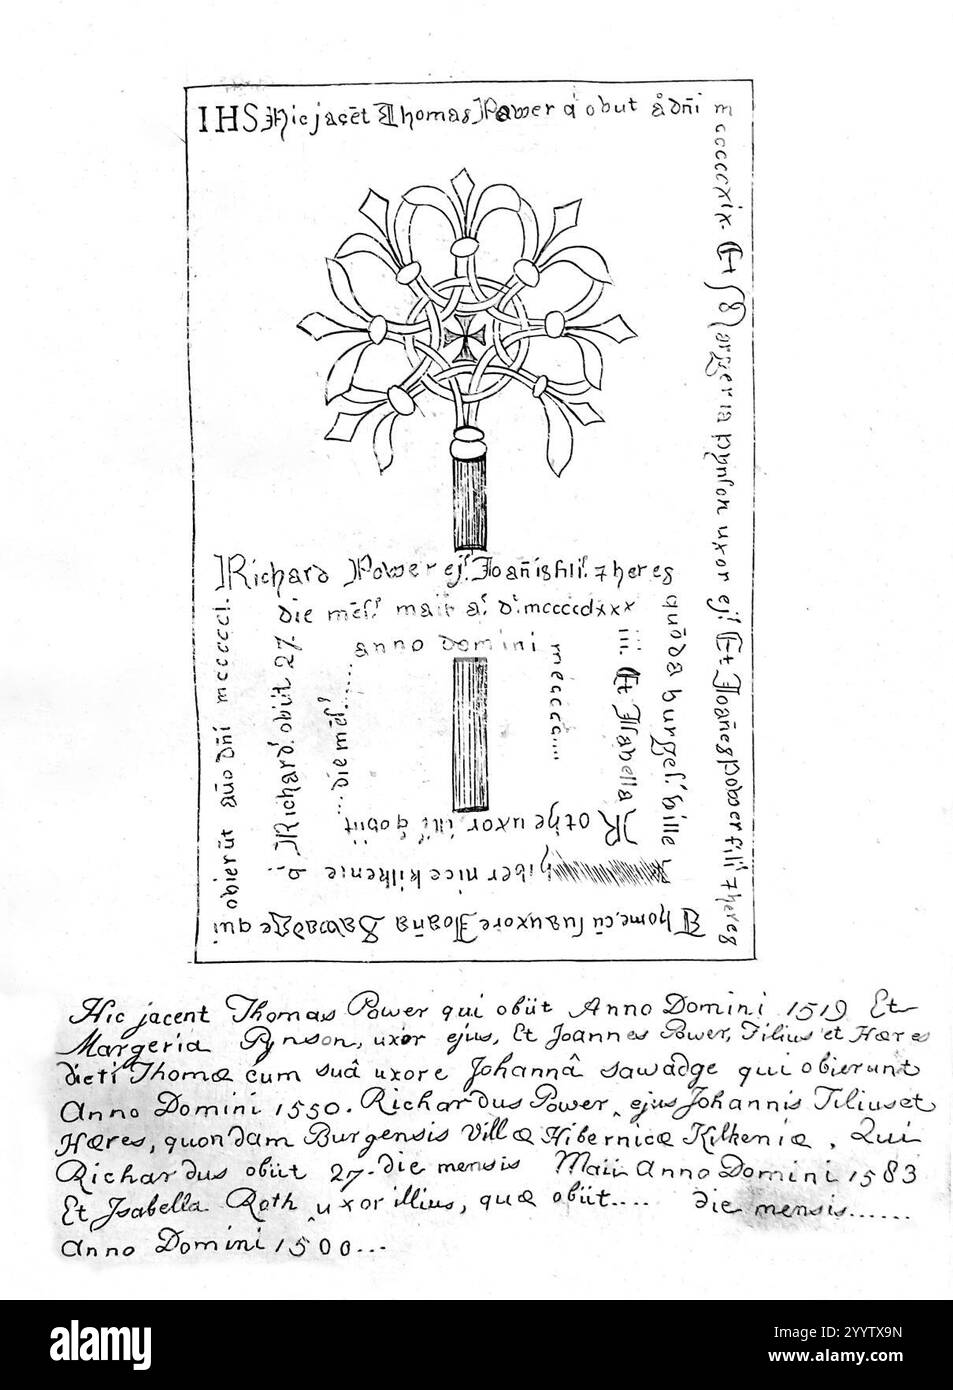 IHS Hic jacēt Thomas Power q̇ obut ȧ dn̄i m
cccccxix. Et Margeria pynson uxor ej! Et Joan̄es power fili' 7 heres
Thome cū sua uxore Joan̄a Savadge qui
obierūt an̄o dn̄i mcccccl.
Richard Power ej! Joan̄is fili! 7 heres
quōda burgēs! bille
hibernice kilkenie
q..
Richard! obiit 27.
die mēs! maii a! d! mcccccdxxx
iii. Et Isabella
Rothe uxor illi! q obiit
...die mēs!.......
anno domini
mcccc....
Hic jacent Thomas Power qui obiit Anno Domini 1519 Et
Margeria Pynson, uxor ejus, Et Joannes Power, Filius et Hæres
dicti Thomæ cum suâ uxore Johannâ Sawadge qui obierunt
Anno Domini 1550. Richardus Power ejus Johannis Filius et
Hæres, quondam Burgensis Villæ Hibernicæ Kilkeniæ, Qui
Richardus obiit 27. die mensis Maii Anno Domini 1583
Et Isabella Roth uxor illius, quæ obiit.... die mensis......
Anno Domini 1500...
alamy
Image ID: 2YYTX9N
www.alamy.com